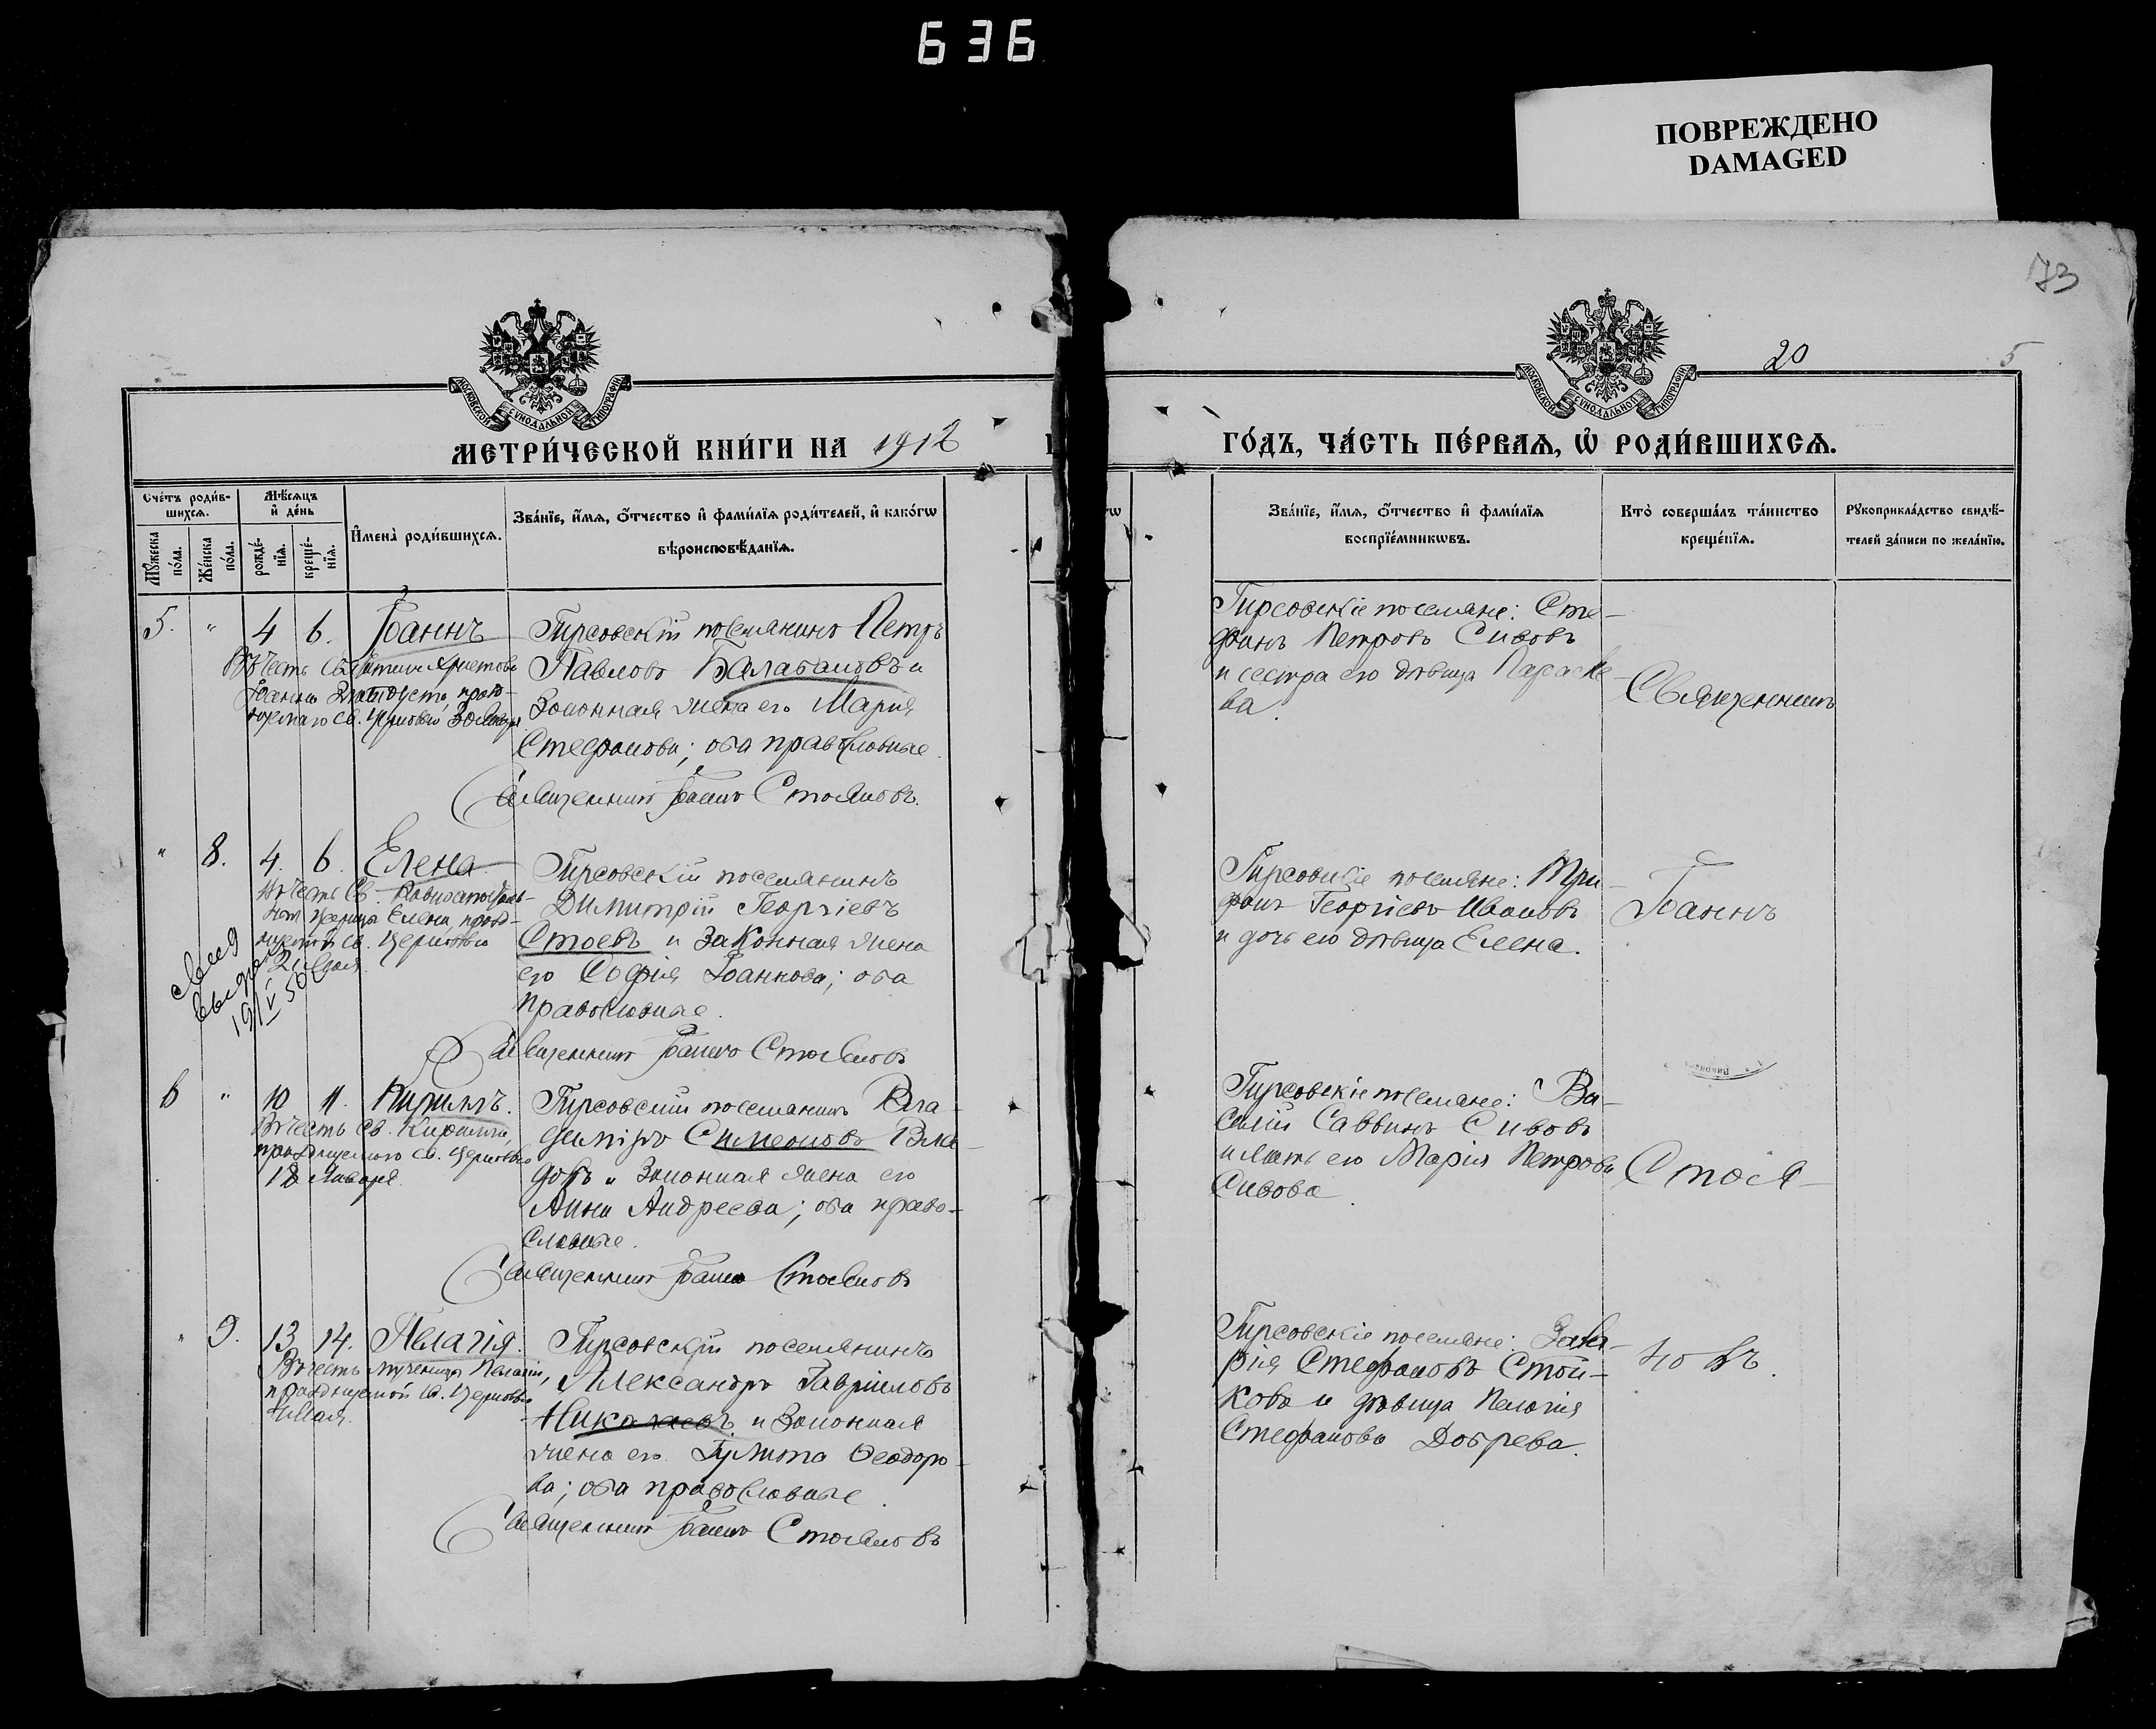 636
ПОВРЕЖДЕНО
DAMAGED
73
20
5
МОСКОВСКОЙ СѴНОДАЛЬНОЙ ТИПОГРАФІИ
МОСКОВСКОЙ СѴНОДАЛЬНОЙ ТИПОГРАФІИ
МЕТРИ́ЧЕСКОЙ КНИ́ГИ НА 1912
ГО́ДЪ, ЧА́СТЬ ПЕ́РВАЯ, Ѿ РОДИ́ВШИХСЯ.
Сче́тъ роди́в-
шихся.
Мѣ́сяцъ
и҆ де́нь
Мꙋ́жеска по́ла.
Же́нска по́ла.
рожде́-нїя.
креще́-нїя.
И҆мена̀ роди́вшихся.
Зва́нїе, и҆́мя, ѻ҆́тчество и҆ фами́лїя роди́телей, и҆ како́гѡ
вѣроисповѣ́данїя.
Зва́нїе, и҆́мя, ѻ҆́тчество и҆ фами́лїя
воспрїе́мникѡвъ.
Кто̀ соверша́лъ та́инство
креще́нїя.
Рꙋкоприкла́дство свидѣ́-
телей за́писи по жела́нїю.
5. " 4 6. Іоаннъ
Гирсовскій поселянинъ Петръ
Павловъ Балабановъ и
Законная жена его Марія
Стефанова; оба православные.
Священникъ Іоаннъ Стояновъ.
Гирсовскіе поселяне: Сте-
фанъ Петровъ Сивовъ
и сестра его дѣвица Параске-
ва.
Священникъ
" 8. 4. 6. Елена
Въ честь Св. Равноапостоль-
ной царицы Елены, празд-
нуемой св. Церковью
21 Мая.
Гирсовскій поселянинъ
Димитрій Георгіевъ
Стоевъ и Законная жена
его Софія Іоаннова; оба
православные.
Священникъ Іоаннъ Стояновъ
Гирсовскіе поселяне: Три-
фонъ Георгіевъ Ивановъ
и дочь его дѣвица Елена.
Іоаннъ
6 " 10 11. Кириллъ.
Въ честь Св. Кирилла,
празднуемаго св. Церковью
18 Января.
Гирсовскій поселянинъ Вла-
диміръ Симеоновъ
и Законная жена его
Анна Андреева; оба право-
славные.
Священникъ Іоаннъ Стояновъ
Гирсовскіе поселяне: Ва-
силій Саввинъ Сивовъ
и мать его Марія Петрова
Сивова.
Стоя-
" 9. 13 14. Пелагія.
Въ честь мученицы Пелагіи,
празднуемой св. Церковью
4 Мая.
Гирсовскій поселянинъ
Александръ Гавріиловъ
Николаевъ и Законная
жена его Ѳеодоро-
ва; оба православные.
Священникъ Іоаннъ Стояновъ
Гирсовскіе поселяне: Заха-
рія Стефановъ Стой-
ковъ и дѣвица Пелагія
Стефанова Добрева.
новъ.